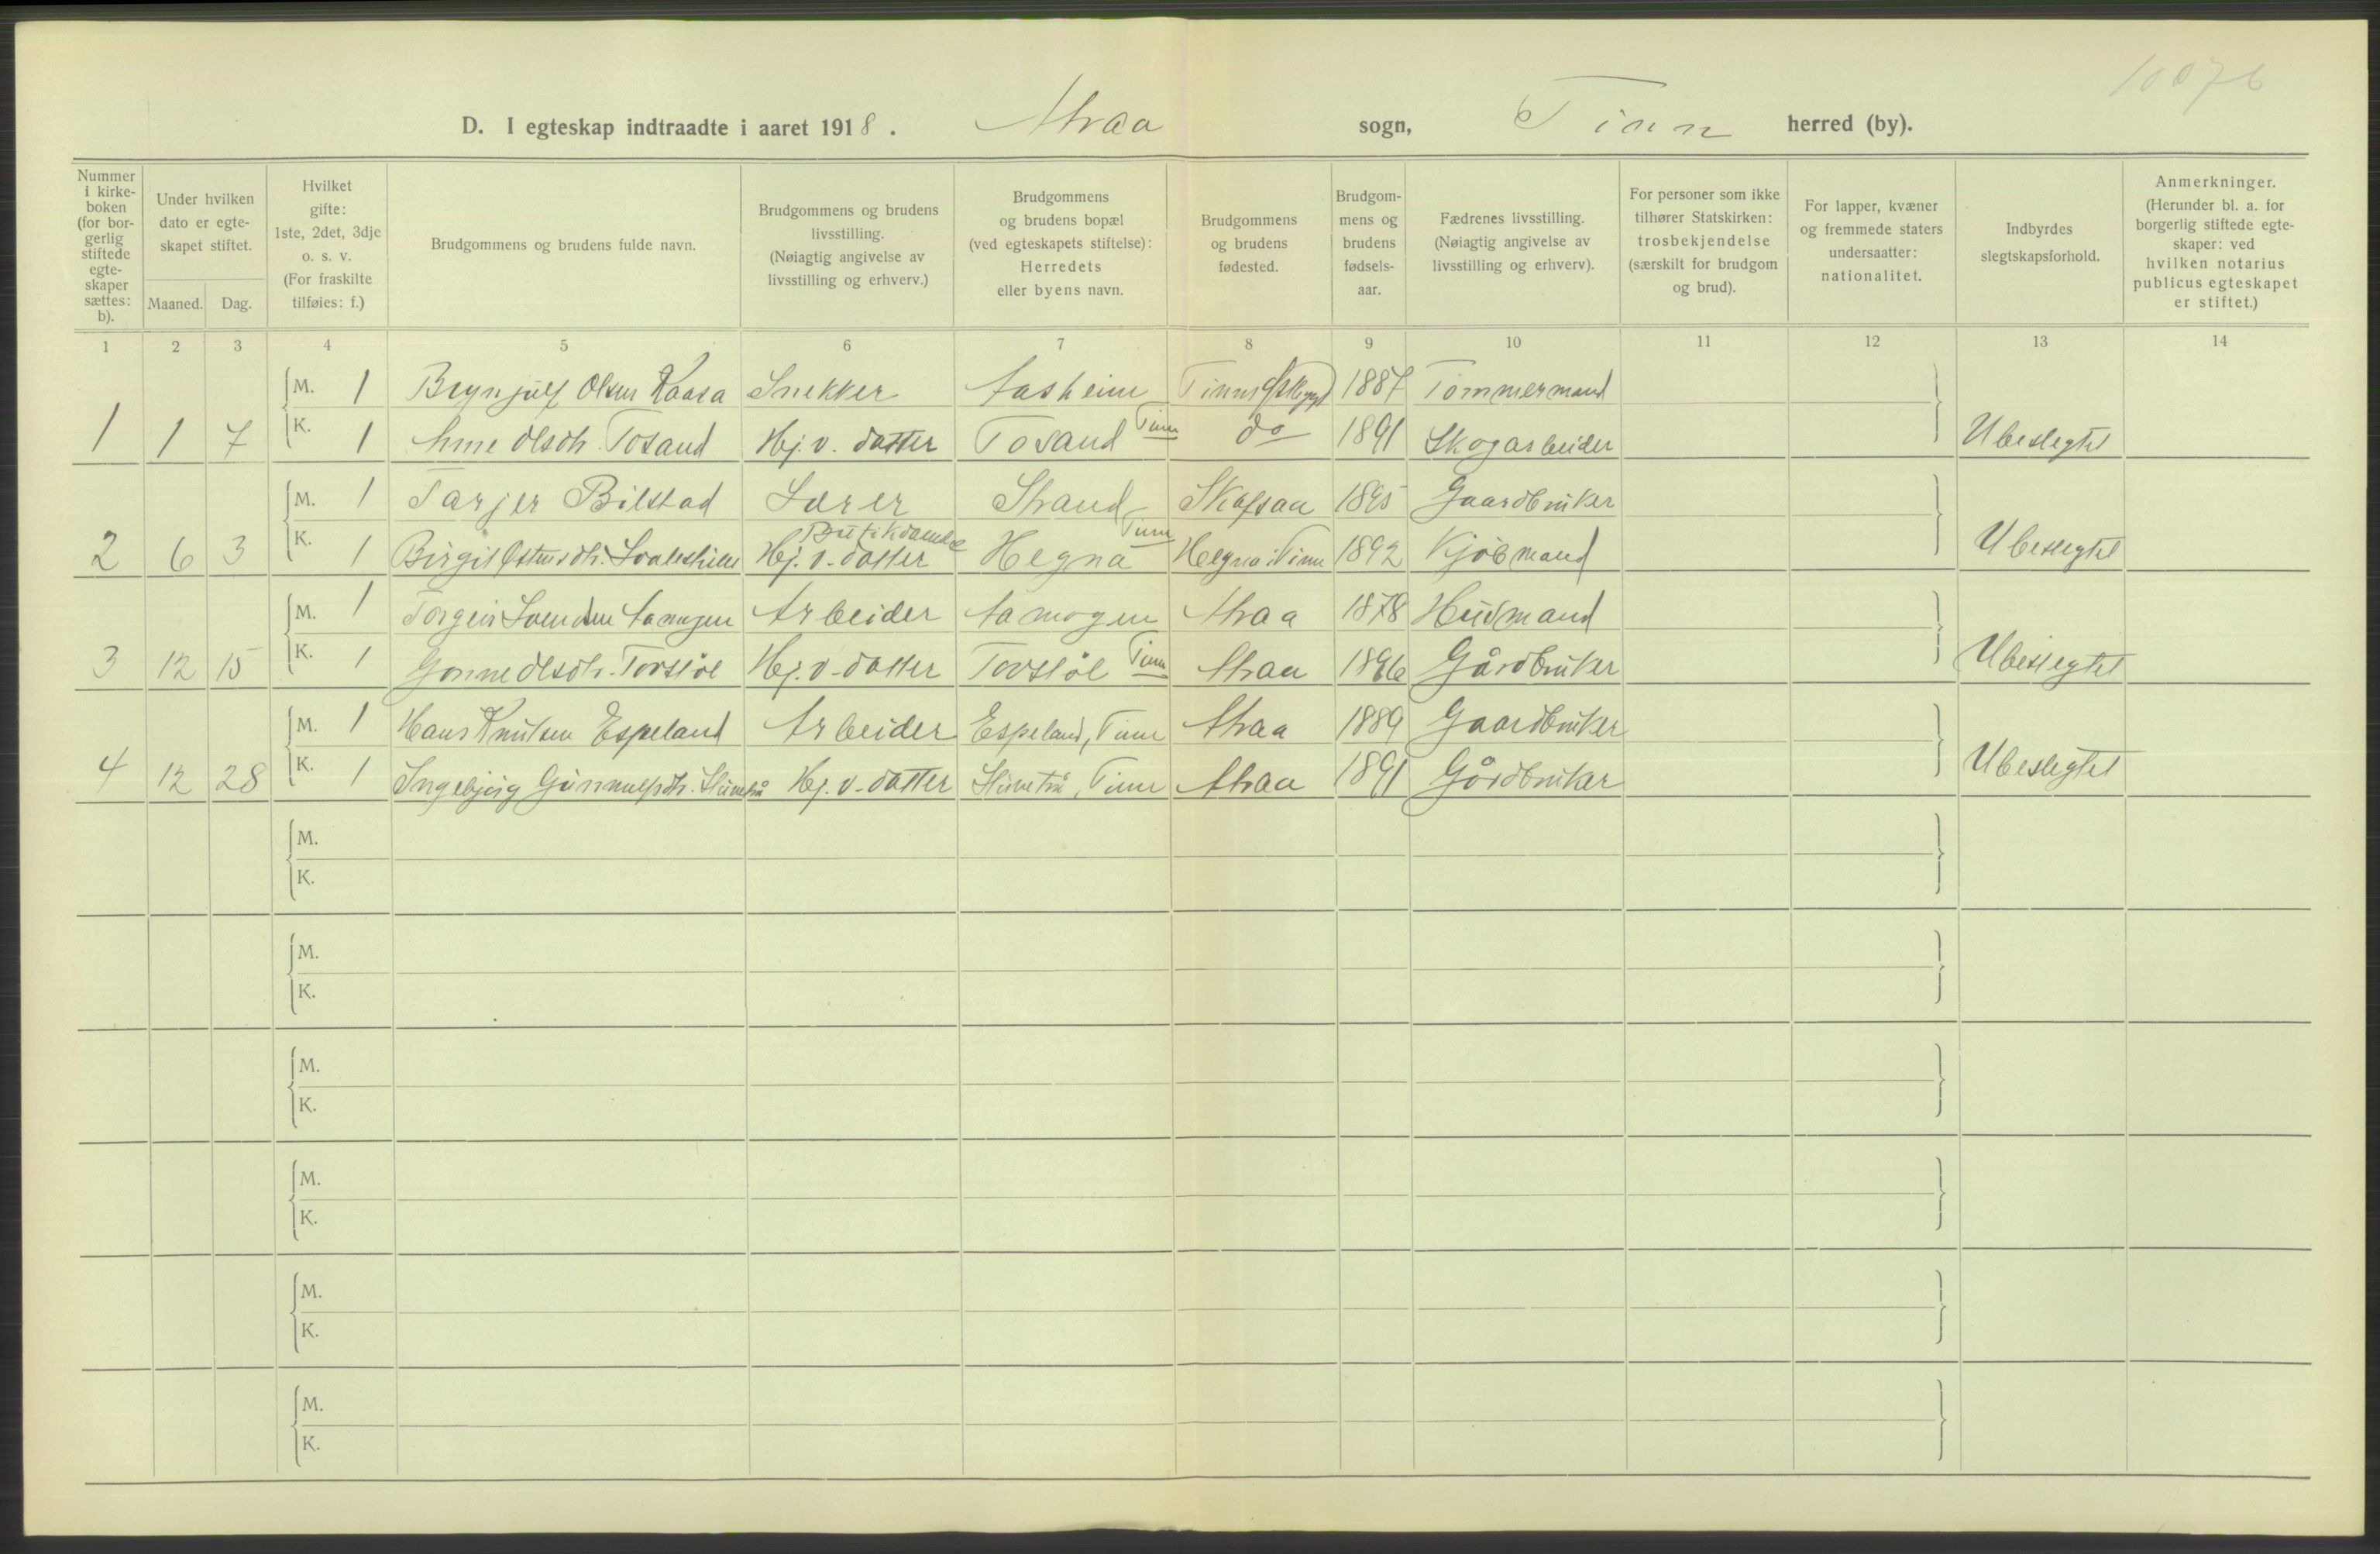 10076
D. I egteskap indtraadte i aaret 1918. Atraa sogn, Tinn herred (by).
Nummer i kirke-boken (for bor-gerlig stiftede egte-skaper sættes: b).
Under hvilken dato er egte-skapet stiftet.
Maaned. Dag.
Hvilket gifte: 1ste, 2det, 3dje o. s. v. (For fraskilte tilføies: f.)
Brudgommens og brudens fulde navn.
Brudgommens og brudens livsstilling. (Nøiagtig angivelse av livsstilling og erhverv.)
Brudgommens og brudens bopæl (ved egteskapets stiftelse): Herredets eller byens navn.
Brudgommens og brudens fødested.
Brudgom-mens og brudens fødsels-aar.
Fædrenes livsstilling. (Nøiagtig angivelse av livsstilling og erhverv).
For personer som ikke tilhører Statskirken: trosbekjendelse (særskilt for brudgom og brud).
For lapper, kvæner og fremmede staters undersaatter: nationalitet.
Indbyrdes slegtskapsforhold.
Anmerkninger. (Herunder bl. a. for borgerlig stiftede egte-skaper: ved hvilken notarius publicus egteskapet er stiftet.)
1 2 3 4 5 6 7 8 9 10 11 12 13 14
M. 1 Brynjulf Olsen Kaasa Snekker Aasheim 1887 Tømmermand
1 1 7 K. 1 Anne Olsdtr. Tosand Hj. v. datter Tosand Tinn do 1891 Skogarbeider Ubeslegtet
M. 1 Tarjer Bilstad Lærer Strand Skafsaa 1895 Gaardbruker
Butikdame
2 6 3 K. 1 Birgit Hj. v. datter Hegna Tinn Hegna i Tinn 1892 Kjøbmand Ubeslegtet
M. 1 Torgeir Svendsen Aamogen Arbeider Aamogen Atraa 1878 Husmand
3 12 15 K. 1 Gonne Olsdtr. Torstøl Hj. v. datter Torstøl Tinn Atraa 1896 Gårdbruker Ubeslegtet
M. 1 Hans Knutsen Espeland Arbeider Espeland, Tinn Atraa 1889 Gaardbruker
4 12 28 K. 1 Ingebjørg Gunnulfsdtr. Hj. v. datter Tinn Atraa 1891 Gårdbruker Ubeslegtet
M.
K.
M.
K.
M.
K.
M.
K.
M.
K.
M.
K.